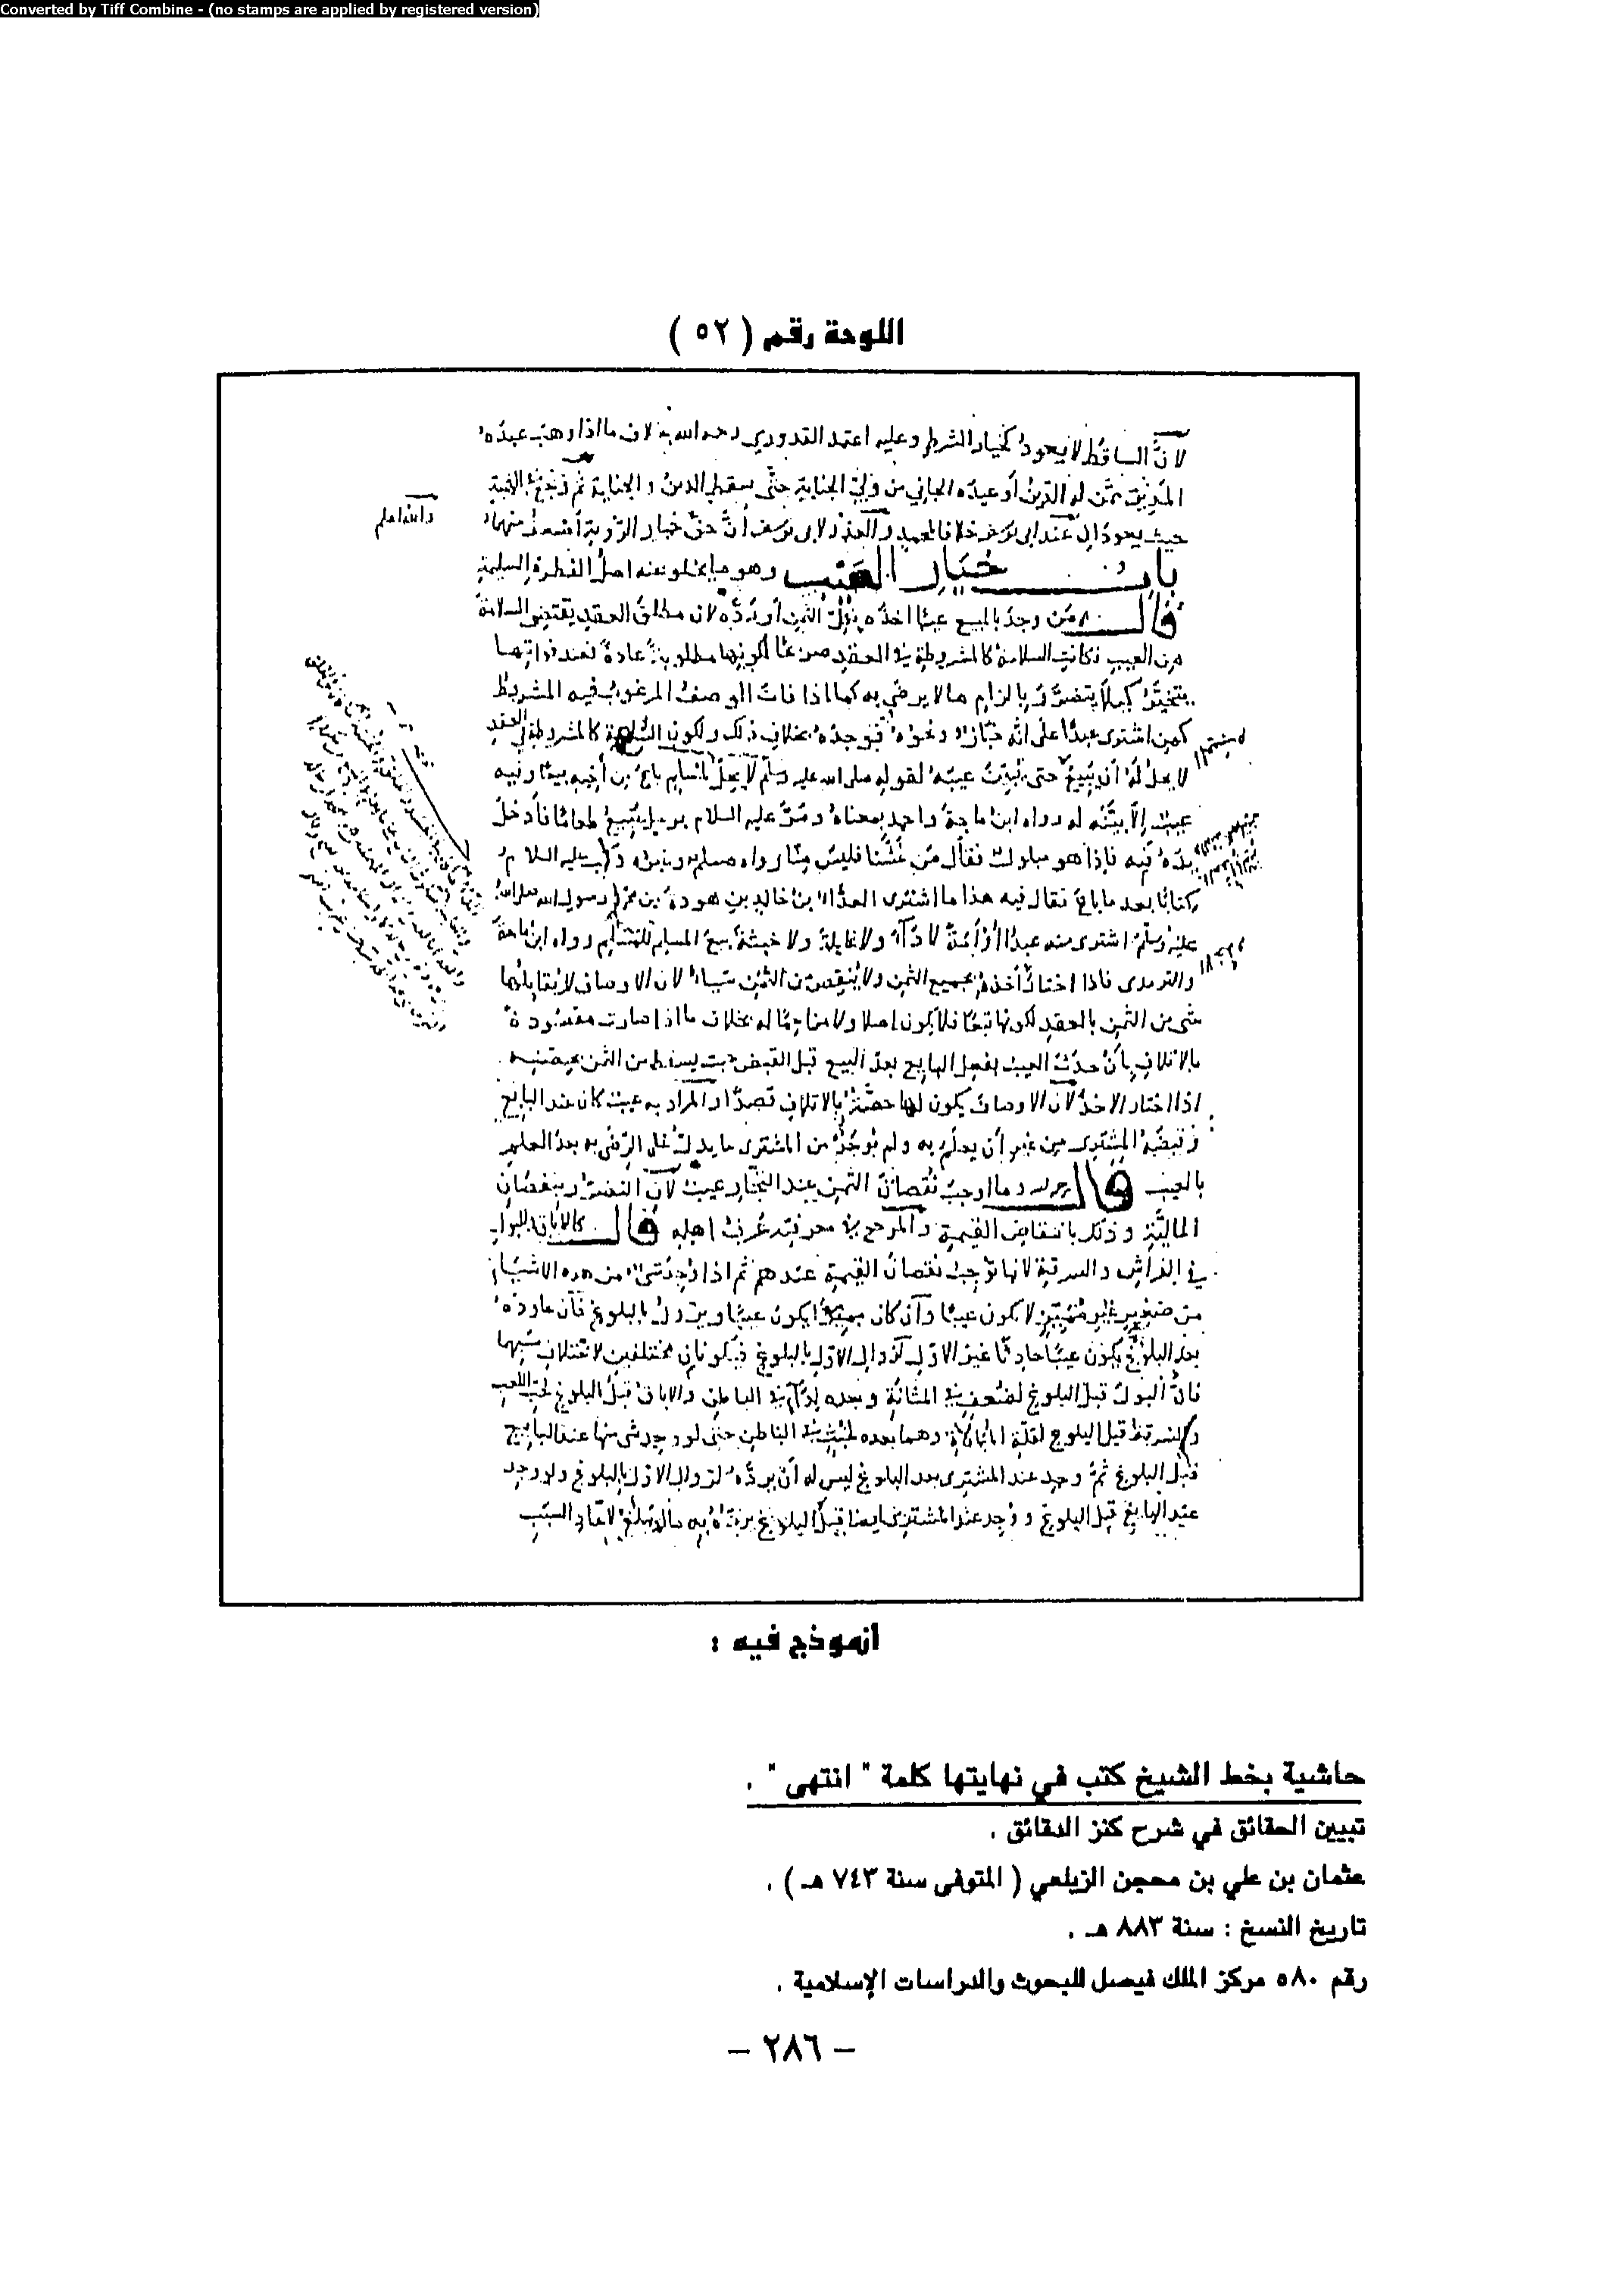 Converted by Tiff Combine - (no stamps are applied by registered version)
اللوحة رقم ( ٥٢ )
لانَّ الساقط لا يعود كخيار الشرط وعليه اعتمد القدوري رحمه الله بخلاف ما اذا وهب عبده
المديون ممن له الدين أو عبده الجاني من ولي الجناية حتى يسقط الدين والجناية ثم رجع في الهبة
حيث يعود الدين عند ابى يوسف خلافا لمحمد والعذر لابى يوسف أنَّ حق خيار الرؤية أضعف منهما
والله اعلم
باب خيار العيب وهو ما يخلو عنه اصل الفطرة السليمة
قال من وجد بالمبيع عيبا اخذه بكل الثمن أو رده لان مطلق العقد يقتضي السلامة
من العيب فكانت السلامة كالمشروطة في العقد صريحا لكونها مطلوبة عادة فعند فواتها
يتخير كيلا يتضرر بالزام ما لا يرضى به كما اذا فات الوصف المرغوب فيه المشروط
كمن اشترى عبدا على انه خباز ونحوه فوجده بخلاف ذلك ولكون السلامة كالمشروطة في العقد
لا يحل له أن يبيع حتى يبين عيبه لقوله صلى الله عليه وسلم لا يحل لمسلم باع من أخيه بيعا وفيه
عيب إلا بينه له رواه ابن ماجة واحمد بمعناه ومرَّ عليه السلام برجل يبيع طعاما فأدخل
يده فيه فإذا هو مبلول فقال من غشنا فليس منا رواه مسلم وغيره وكتب عليه السلام
كتابا بعد ما باع فقال فيه هذا ما اشترى العداء بن خالد بن هوذة من محمد رسول الله صلى الله
عليه وسلم اشترى منه عبدا أو أمة لا داء ولا غايلة ولا خبثة بيع المسلم للمسلم رواه ابن ماجة
والترمذى فاذا اختار أخذه بجميع الثمن ولا ينقص من الثمن شيا لان الاوصاف لا يقابلها
شى من الثمن بالعقد لكونها تبعا فلا يكون اصلا ولا مزاحما له بخلاف ما اذا صارت مقصودة
بالاتلاف بأن حدث العيب بفعل البايع بعد البيع قبل القبض حيث يسقط من الثمن بحصته
اذا اختار الاخذ لأن الاوصاف يكون لها حصة بالاتلاف قصدا والمراد به عيب كان عند البايع
وقبضه المشترى من غير أن يعلم به ولم يوجد من المشترى ما يدل على الرضى به بعد العلم
بالعيب قال رحمه الله وما اوجب نقصان الثمن عند التجار عيب لأن التضرر بنقصان
المالية وذلك بانتقاص القيمة والمرجع في معرفته عرف اهله قال كالاباق والبول
في الفراش والسرقة لانها توجب نقصان القيمة عندهم ثم اذا وجد شي من هذه الاشيا
من صغير غير مميز لا يكون عيبا وأن كان مميزا يكون عيبا ويزول بالبلوغ فان عاوده
بعد البلوغ يكون عيبا حادثا غير الاول لزوال الاول بالبلوغ فيكونان مختلفين لاختلاف سببهما
فانَّ البول قبل البلوغ لضعف في المثانة وبعده لداء في الباطن والاباق قبل البلوغ لحب اللعب
والسرقة قبل البلوغ لقلة المبالاة وهما بعده لخبث في الباطن حتى لو وجد شى منها عند البايع
قبل البلوغ ثم وجد عند المشترى بعد البلوغ ليس له أن يرده لزوال الاول بالبلوغ ولو وجد
عند البايع قبل البلوغ ووجد عند المشترى ايضا قبل البلوغ يرده به لاتحاد السبب
أنموذج فيه :
حاشية بخط الشيخ كتب في نهايتها كلمة " انتهى " .
تبيين الحقائق في شرح كنز الدقائق .
عثمان بن علي بن محجن الزيلعي ( المتوفى سنة ٧٤٣ هـ ) .
تاريخ النسخ : سنة ٨٨٣ هـ .
رقم ٥٨٠ مركز الملك فيصل للبحوث والدراسات الإسلامية .
– ٢٨٦ –